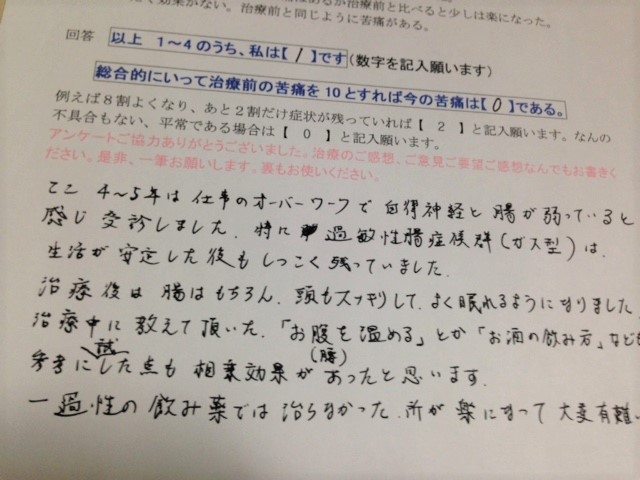 く効果がない。治療前と同じように苦痛がある。
治療前と比べると少しは楽になった。
回答 以上 1～4のうち、私は【 1 】です(数字を記入願います)
総合的にいって治療前の苦痛を10とすれば今の苦痛は【 0 】である。
例えば8割よくなり、あと2割だけ症状が残っていれば【 2 】と記入願います。なんの
不具合もない、平常である場合は【 0 】と記入願います。
アンケートご協力ありがとうございました。治療のご感想、ご意見ご要望ご感想なんでもお書きく
ださい。是非、一筆お願いします。裏もお使いください。
ここ 4～5年は 仕事のオーバーワークで 自律神経と 腸が 弱っていると
感じ 受診しました. 特に 過敏性腸症候群(ガス型)は、
生活が 安定した後も しつこく 残っていました.
治療後は 腸はもちろん. 頭もスッキリして. よく眠れるようになりました.
治療中に 教えて頂いた. 「お腹を温める」とか「お酒の飲み方」なども
(腰)
参考に試した点も 相乗効果が あったと思います.
一過性の 飲み薬では 治らなかった. 所が 楽になって 大変有難い